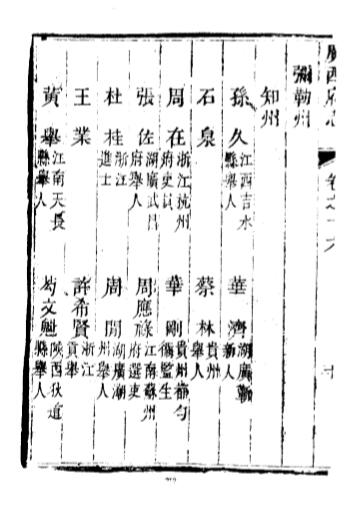 廣西府志 卷之十六 十
彌勒州
知州
孫久 江西吉水縣舉人
華濟 湖廣 人
石泉
蔡林 貴州舉人
周在 浙江杭州府吏員
華剛 貴州都勻衛監生
張佐 湖廣武昌府舉人
周應祿 江南蘇州府選吏
杜桂 浙江進士
周閏 湖廣 州舉人
王業
許希賢 浙江貢舉
黃舉 江南天長縣舉人
芶文魁 陝西狄道縣舉人